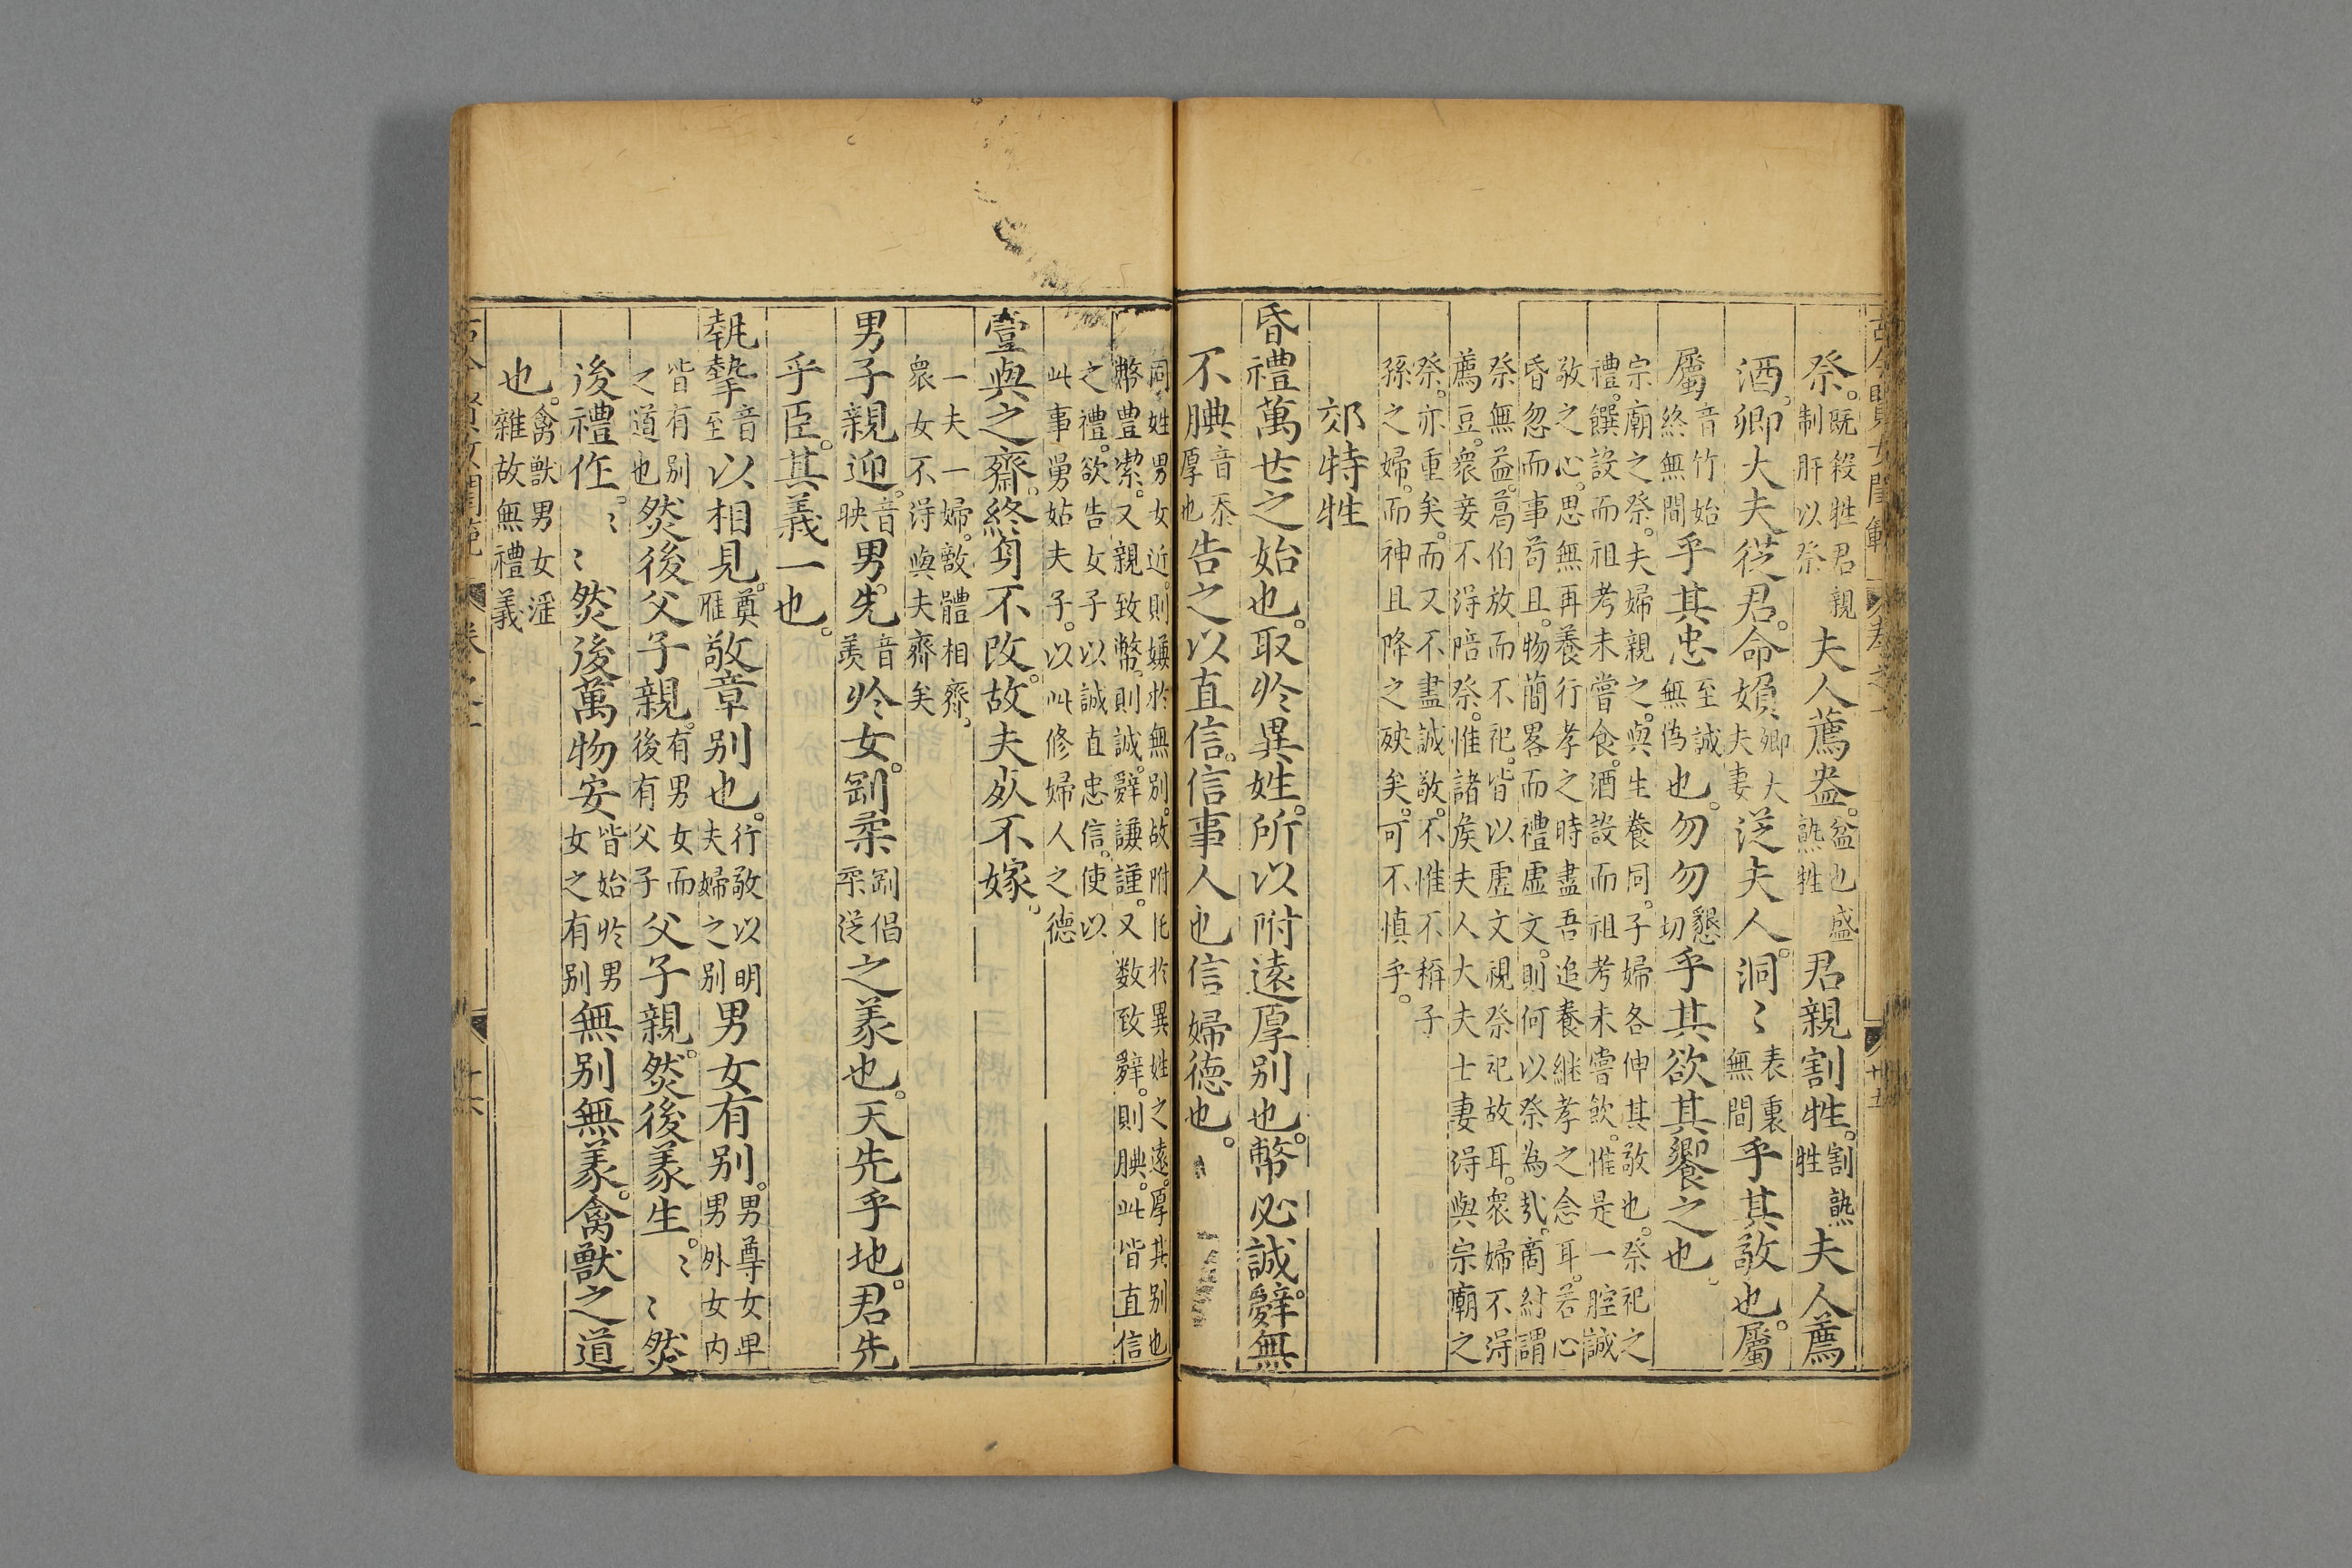 古今賢女閨範 卷之一 廿五
祭。既殺牲君親制肝以祭夫人薦盎。盆也盛熟牲君親割牲。割熟牲夫人薦
酒。卿大夫從君。命婦卿大夫妻從夫人。洞〻表裏無間乎其敬也。屬
屬音竹始終無間乎其忠至誠無偽也。勿勿懇切乎其欲其饗之也。
宗廟之祭。夫婦親之。與生養同。子婦各伸其敬也。祭祀之
禮。饌設而祖考未嘗食。酒設而祖考未嘗飲。惟是一腔誠
敬之心。思無再養行孝之時盡吾追養継孝之念耳。若心
昏忽而事苟且。物簡畧而禮虛文。則何以祭為哉。商紂謂
祭無益。葛伯放而不祀。皆以虛文視祭祀故耳。衆婦不得
薦豆。衆妾不得陪祭。惟諸侯夫人大夫士妻得與宗廟之
祭。亦重矣。而又不盡誠敬。不惟不稱子
孫之婦。而神且降之殃矣。可不慎乎。
郊特牲
昏禮萬世之始也。取於異姓。所以附遠厚别也。幣必誠。辭無
不腆音忝厚也告之以直信。信事人也信婦德也。
同姓男女近。則嫌於無別。故附託於異姓之遠。厚其别也
幣豊潔。又親致幣。則誠。辭謙謹。又数致辭。則腆。此皆直信
之禮。欲告女子以誠直忠信。使以
此事舅姑夫子。以此修婦人之德
壹與之齊。終身不改。故夫死不嫁。
一夫一婦。敵體相齊。
衆女不得與夫齊矣
男子親迎。音映男。先音羡於女。剛柔剛倡柔從之義也。天先乎地。君先
乎臣。其義一也。
執摯音至以相見。奠雁敬章别也。行敬以明夫婦之别男女有别。男尊女卑男外女内
皆有别之道也然後父子親。有男女而後有父子父子親。然後義生。〻〻然
後禮作。〻〻然後萬物安皆始於男女之有别無别無義。禽獸之道
也。禽獸男女淫雜故無禮義